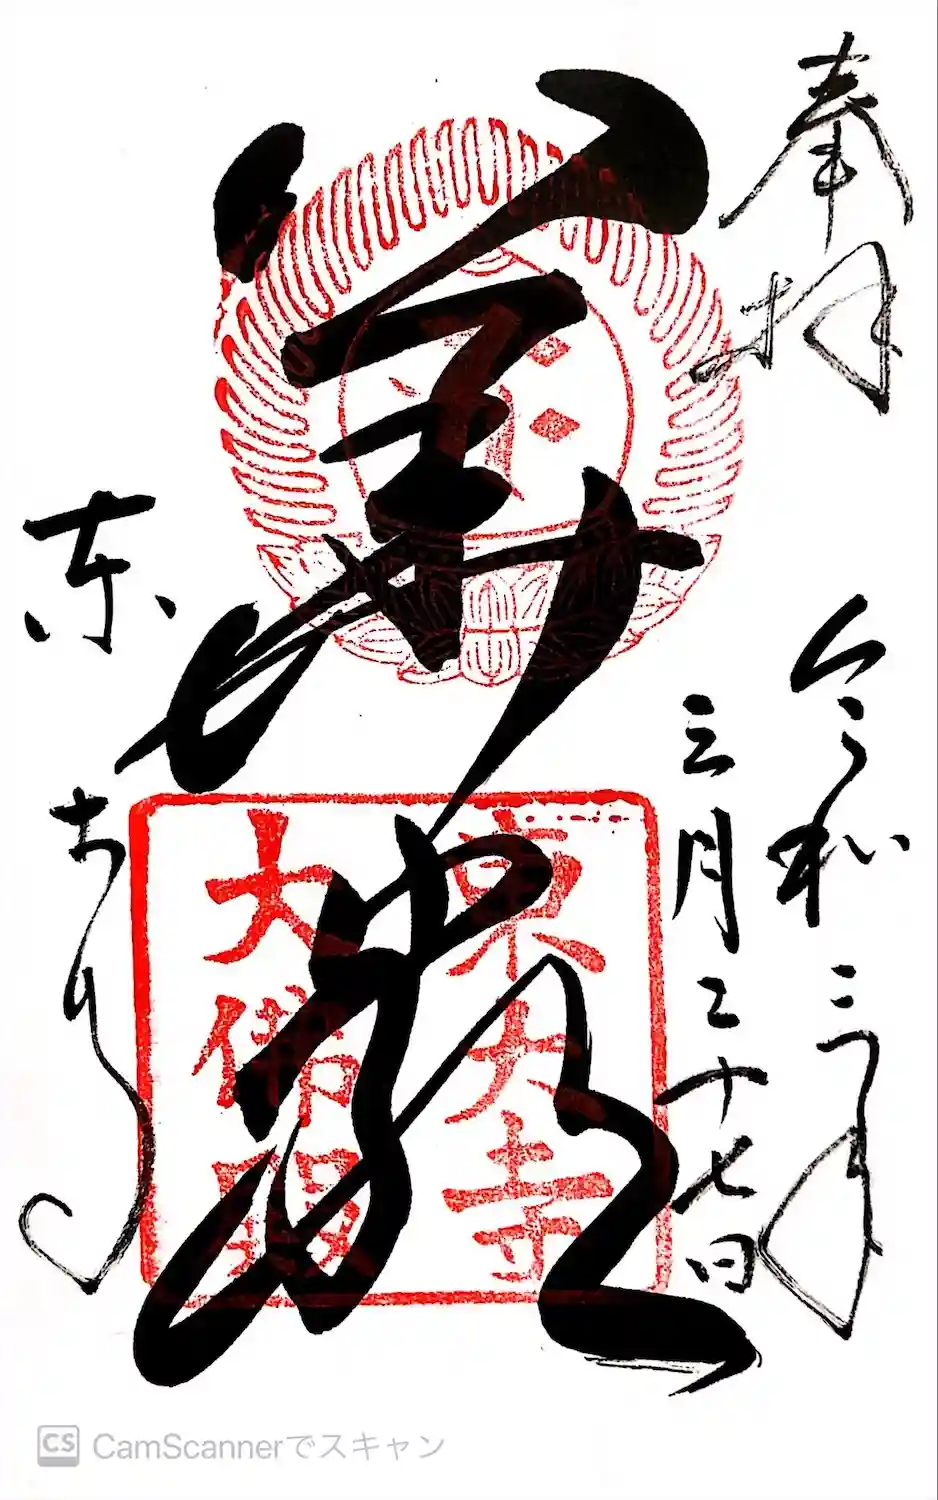 奉拝
令和三年
三月二十七日
華厳
東大寺
東大寺
大佛殿
CS CamScannerでスキャン